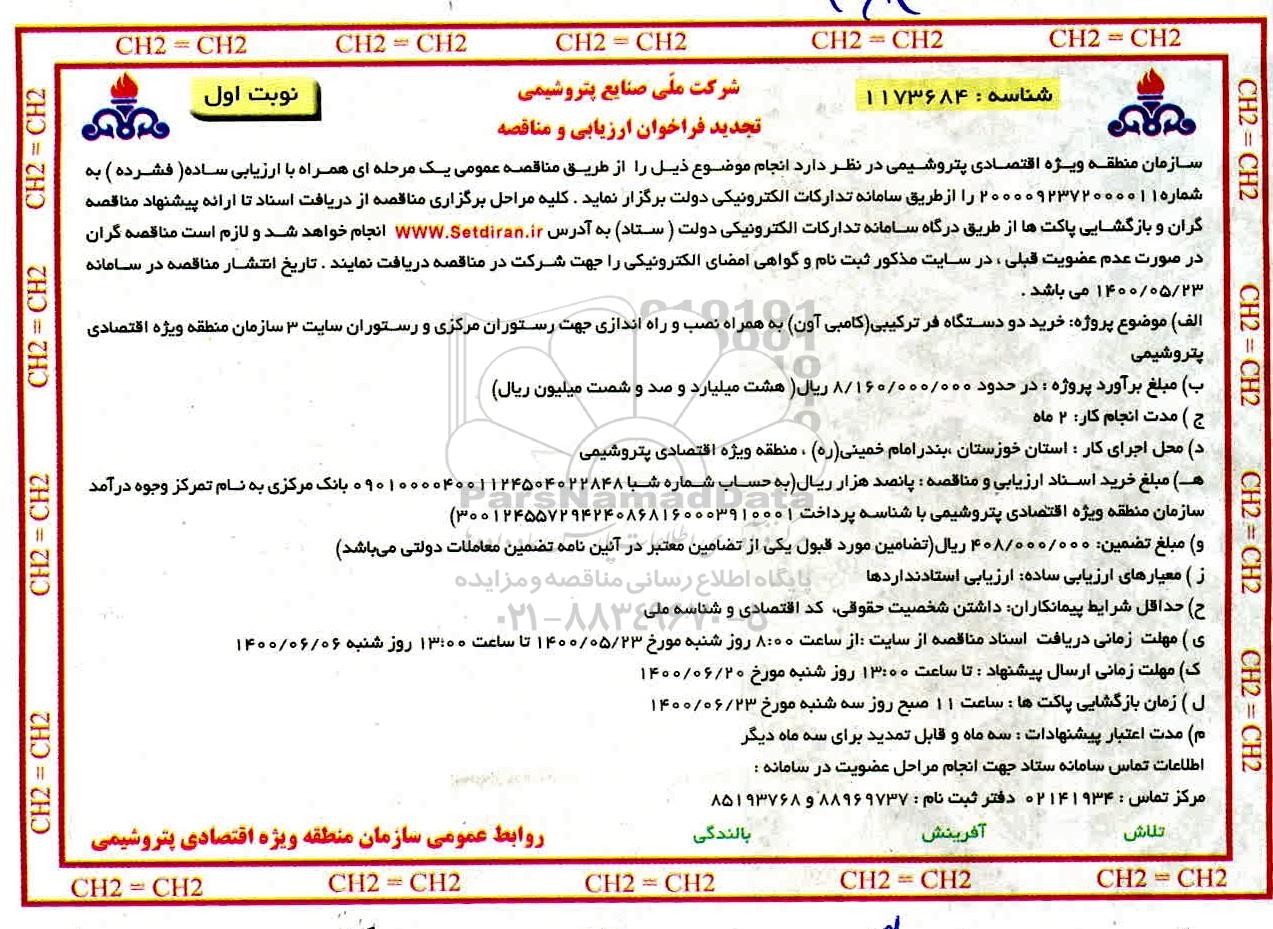 CH2 = CH2 CH2 = CH2 CH2 = CH2 CH2 = CH2 CH2 = CH2
شناسه : ۱۱۷۳۶۸۴
شرکت ملّی صنایع پتروشیمی
نوبت اول
تجدید فراخوان ارزیابی و مناقصه
سازمان منطقه ویژه اقتصادی پتروشیمی در نظر دارد انجام موضوع ذیل را از طریق مناقصه عمومی یک مرحله ای همراه با ارزیابی ساده( فشرده ) به
شماره۲۰۰۰۰۹۲۳۷۲۰۰۰۰۱۱ را ازطریق سامانه تدارکات الکترونیکی دولت برگزار نماید . کلیه مراحل برگزاری مناقصه از دریافت اسناد تا ارائه پیشنهاد مناقصه
گران و بازگشایی پاکت ها از طریق درگاه سامانه تدارکات الکترونیکی دولت ( ستاد) به آدرس WWW.Setdiran.ir انجام خواهد شد و لازم است مناقصه گران
در صورت عدم عضویت قبلی ، در سایت مذکور ثبت نام و گواهی امضای الکترونیکی را جهت شرکت در مناقصه دریافت نمایند . تاریخ انتشار مناقصه در سامانه
۱۴۰۰/۰۵/۲۳ می باشد .
الف) موضوع پروژه: خرید دو دستگاه فر ترکیبی(کامبی آون) به همراه نصب و راه اندازی جهت رستوران مرکزی و رستوران سایت ۳ سازمان منطقه ویژه اقتصادی
پتروشیمی
ب) مبلغ برآورد پروژه : در حدود ۸/۱۶۰/۰۰۰/۰۰۰ ریال( هشت میلیارد و صد و شصت میلیون ریال)
ج ) مدت انجام کار: ۲ ماه
د) محل اجرای کار : استان خوزستان ،بندرامام خمینی(ره) ، منطقه ویژه اقتصادی پتروشیمی
هـ) مبلغ خرید اسناد ارزیابی و مناقصه : پانصد هزار ریال(به حساب شماره شبا ۰۹۰۱۰۰۰۰۴۰۰۱۱۲۴۵۰۴۰۲۲۸۴۸ بانک مرکزی به نام تمرکز وجوه درآمد
سازمان منطقه ویژه اقتصادی پتروشیمی با شناسه پرداخت ۳۰۰۱۲۴۵۵۷۲۹۴۲۴۰۸۶۸۱۶۰۰۰۳۹۱۰۰۰۱)
و) مبلغ تضمین: ۴۰۸/۰۰۰/۰۰۰ ریال(تضامین مورد قبول یکی از تضامین معتبر در آئین نامه تضمین معاملات دولتی می‌باشد)
ز ) معیارهای ارزیابی ساده: ارزیابی استادندارد‌ها
ح) حداقل شرایط پیمانکاران: داشتن شخصیت حقوقی، کد اقتصادی و شناسه ملی
ی ) مهلت زمانی دریافت اسناد مناقصه از سایت :از ساعت ۸:۰۰ روز شنبه مورخ ۱۴۰۰/۰۵/۲۳ تا ساعت ۱۳:۰۰ روز شنبه ۱۴۰۰/۰۶/۰۶
ک) مهلت زمانی ارسال پیشنهاد : تا ساعت ۱۳:۰۰ روز شنبه مورخ ۱۴۰۰/۰۶/۲۰
ل ) زمان بازگشایی پاکت ها : ساعت ۱۱ صبح روز سه شنبه مورخ ۱۴۰۰/۰۶/۲۳
م) مدت اعتبار پیشنهادات : سه ماه و قابل تمدید برای سه ماه دیگر
اطلاعات تماس سامانه ستاد جهت انجام مراحل عضویت در سامانه :
مرکز تماس : ۰۲۱۴۱۹۳۴ دفتر ثبت نام : ۸۸۹۶۹۷۳۷ و ۸۵۱۹۳۷۶۸
تلاش آفرینش بالندگی
روابط عمومی سازمان منطقه ویژه اقتصادی پتروشیمی
CH2 = CH2 CH2 = CH2 CH2 = CH2 CH2 = CH2 CH2 = CH2
CH2 = CH2 CH2 = CH2 CH2 = CH2 CH2 = CH2
CH2 = CH2 CH2 = CH2 CH2 = CH2 CH2 = CH2
ParsNamadData
پایگاه اطلاع رسانی مناقصه و مزایده
۰۲۱-۸۸۳۴۹۶۷۰-۵